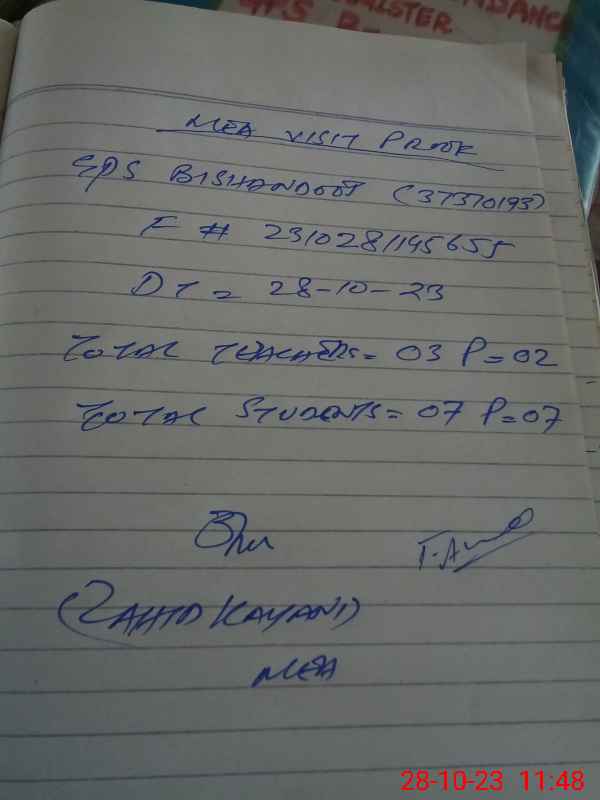 ISTER
GPS B
MEA VISIT PROOF
GPS BISHANDOOT (37370193)
F # 2310281145655
DT = 28-10-23
TOTAL TEACHERS = 03 P = 02
TOTAL STUDENTS = 07 P = 07
(ZAHID KAYANI)
MEA
28-10-23 11:48